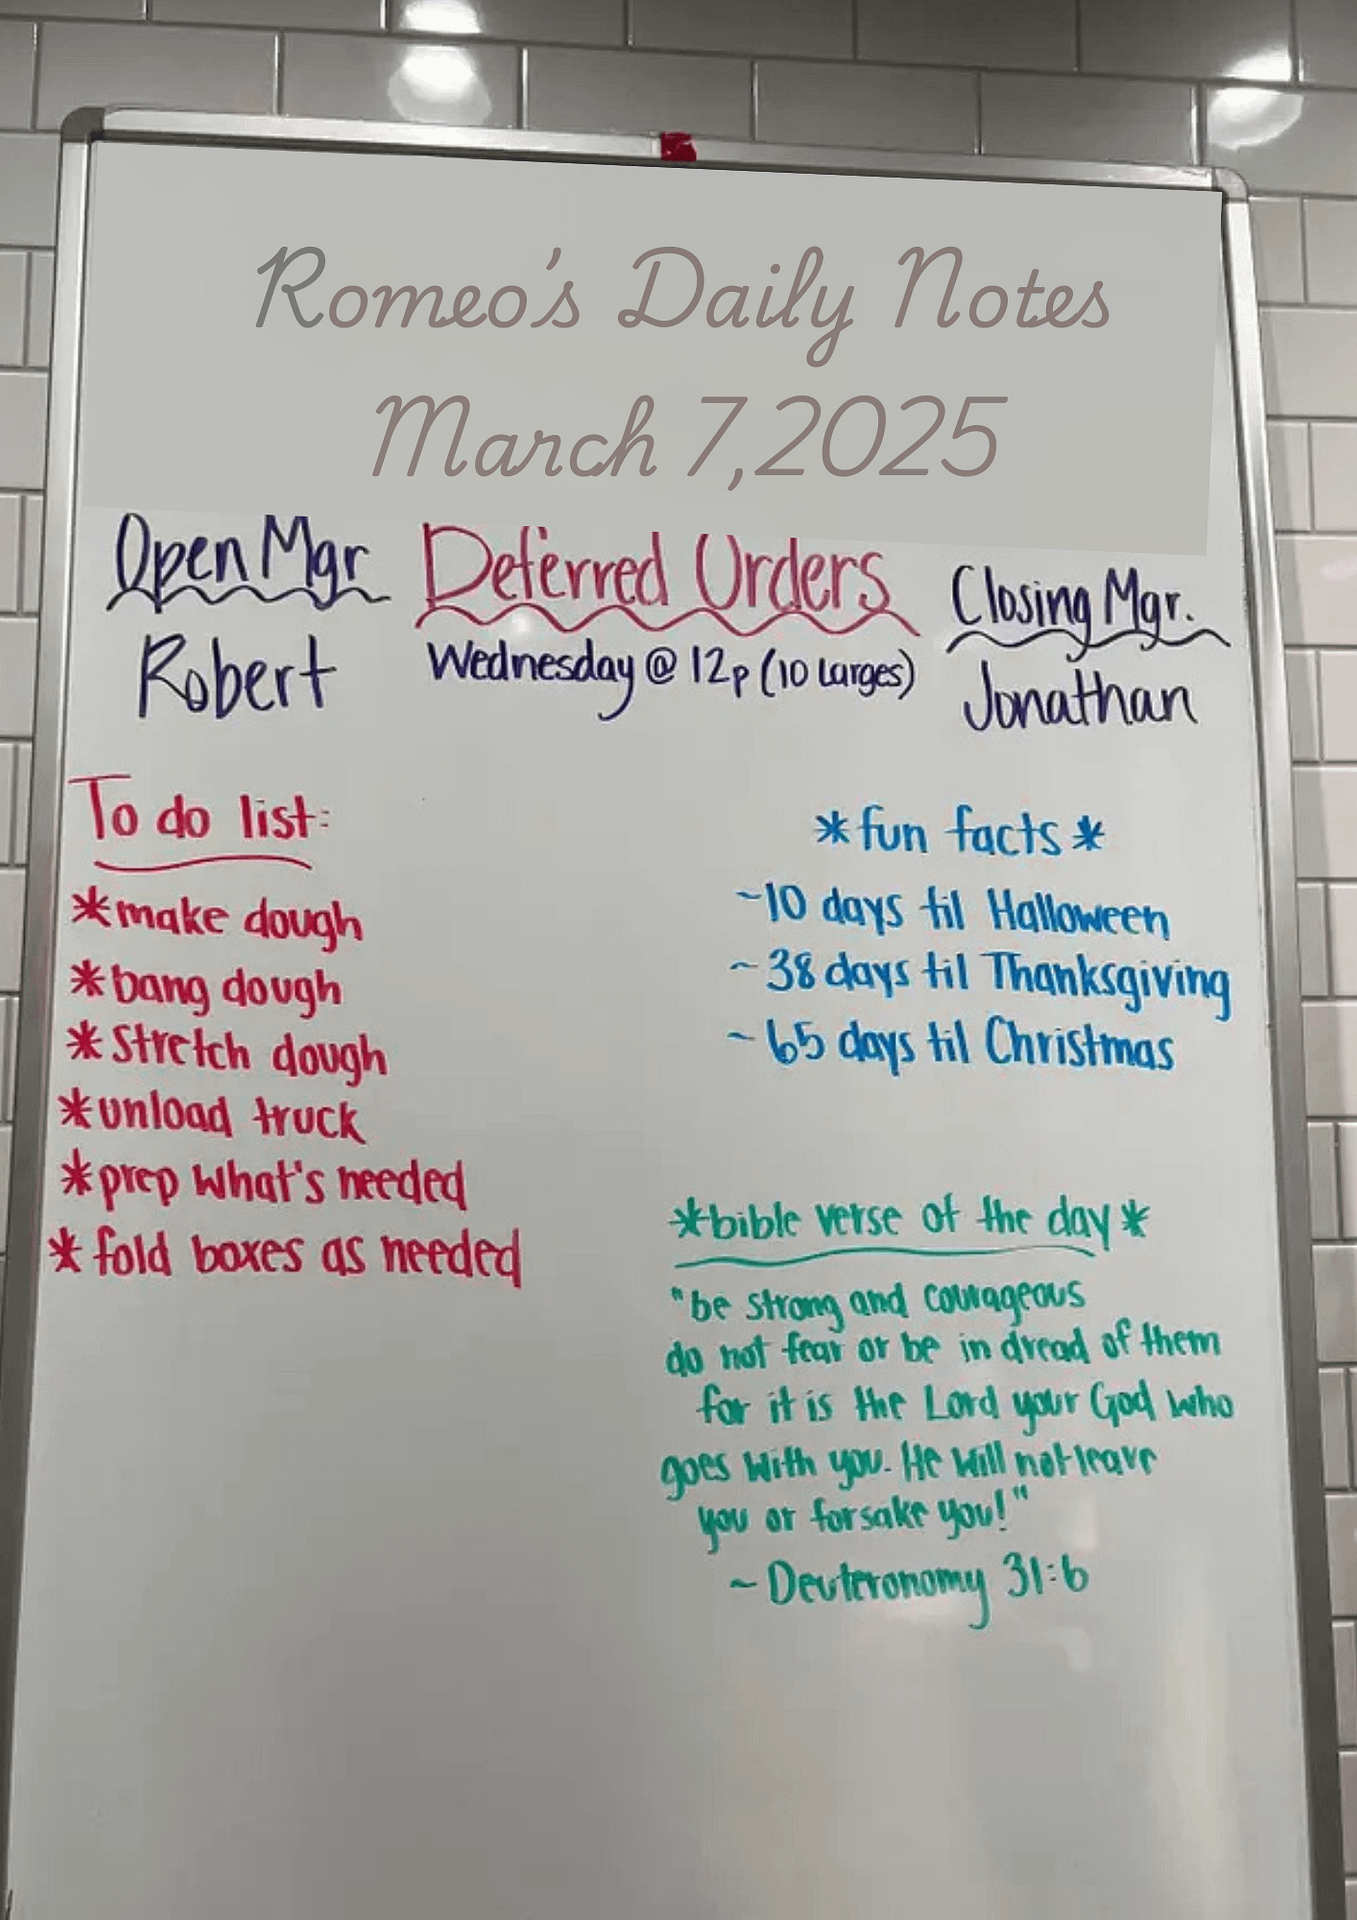 Romeo's Daily Notes
March 7,2025
Open Mgr
Robert
Deferred Orders
Wednesday @ 12p (10 Larges)
Closing Mgr.
Jonathan
To do list:
*make dough
*bang dough
*Stretch dough
*unload truck
*prep what's needed
*fold boxes as needed
*fun facts*
~10 days til Halloween
~38 days til Thanksgiving
~65 days til Christmas
*bible verse of the day*
"be strong and courageous
do not fear or be in dread of them
for it is the Lord your God who
goes with you. He will not leave
you or forsake you!"
~Deuteronomy 31:6